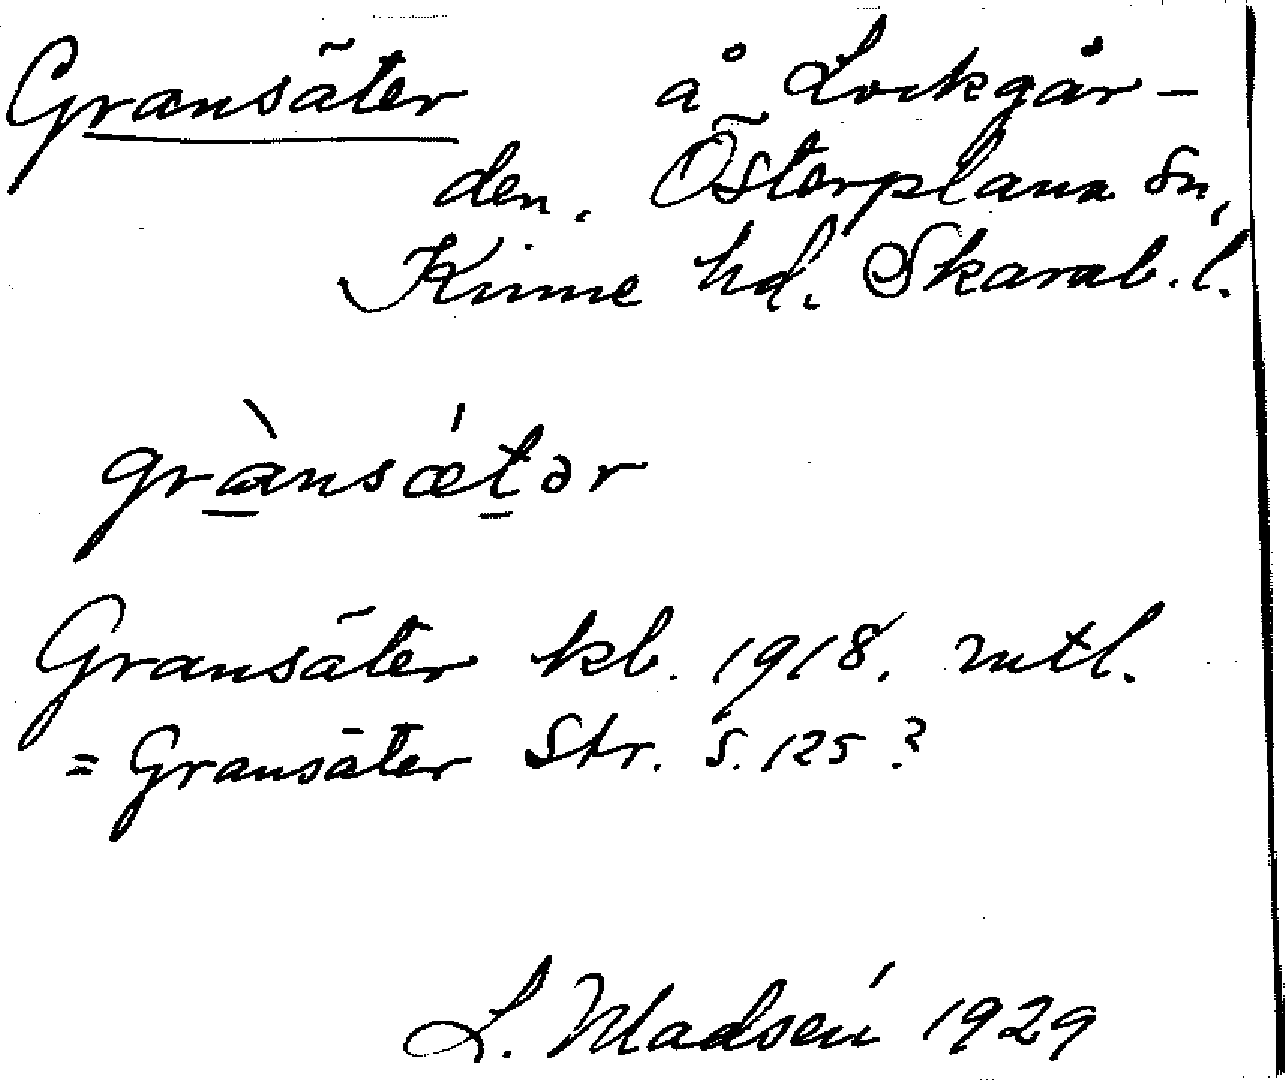 Gransäter å Lockgår-
den. Österplana sn,
Kinne hd. Skarab. l.
grànsǽtər
Gransäter kb. 1918. mtl.
= Gransäter Str. s. 125?
L. Madsén 1929